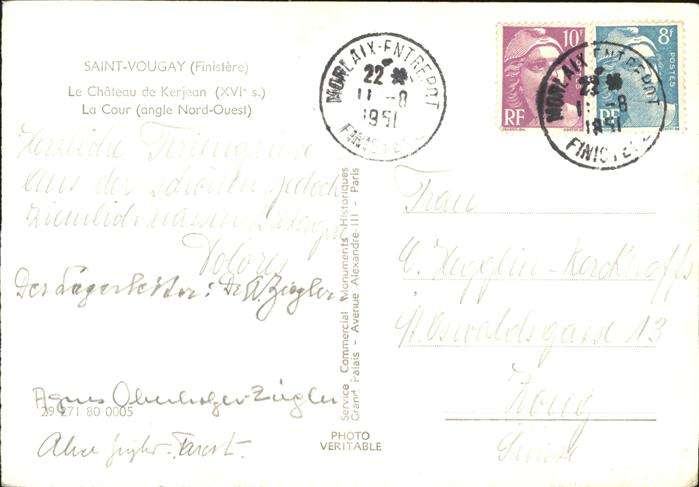 SAINT-VOUGAY (Finistère)
Le Château de Kerjean (XVIe s.)
La Cour (angle Nord-Ouest)
MORLAIX-ENTREPOT
22 H
11-8
1951
FINISTERE
10F
RF
8F
POSTES
RF
MORLAIX-ENTREPOT
11-8
1951
FINISTERE
Herzliche Feriengrüsse
aus der schönen, jedoch
ziemlich nassen Bretagne
Dolores
Der Lagerleiter: Dr. W. Ziegler
Agnes Oberholzer-Ziegler
29 271 80 0005
Alice Ziegler-
Service Commercial Monuments Historiques
Grand Palais - Avenue Alexandre-III - Paris
PHOTO
VERITABLE
Frau
C. Hegglin-Kerckhoffs
St. Oswaldsgasse 13
Zoug
Suisse